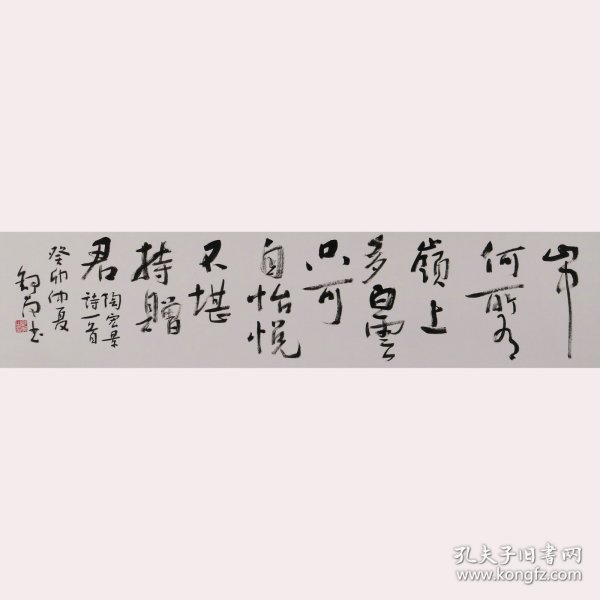 山中
何所有
嶺上
多白雲
只可
自怡悅
不堪
持贈
君
陶宏景
詩一首
癸卯仲夏
书
孔夫子旧书网
www.kongfz.com